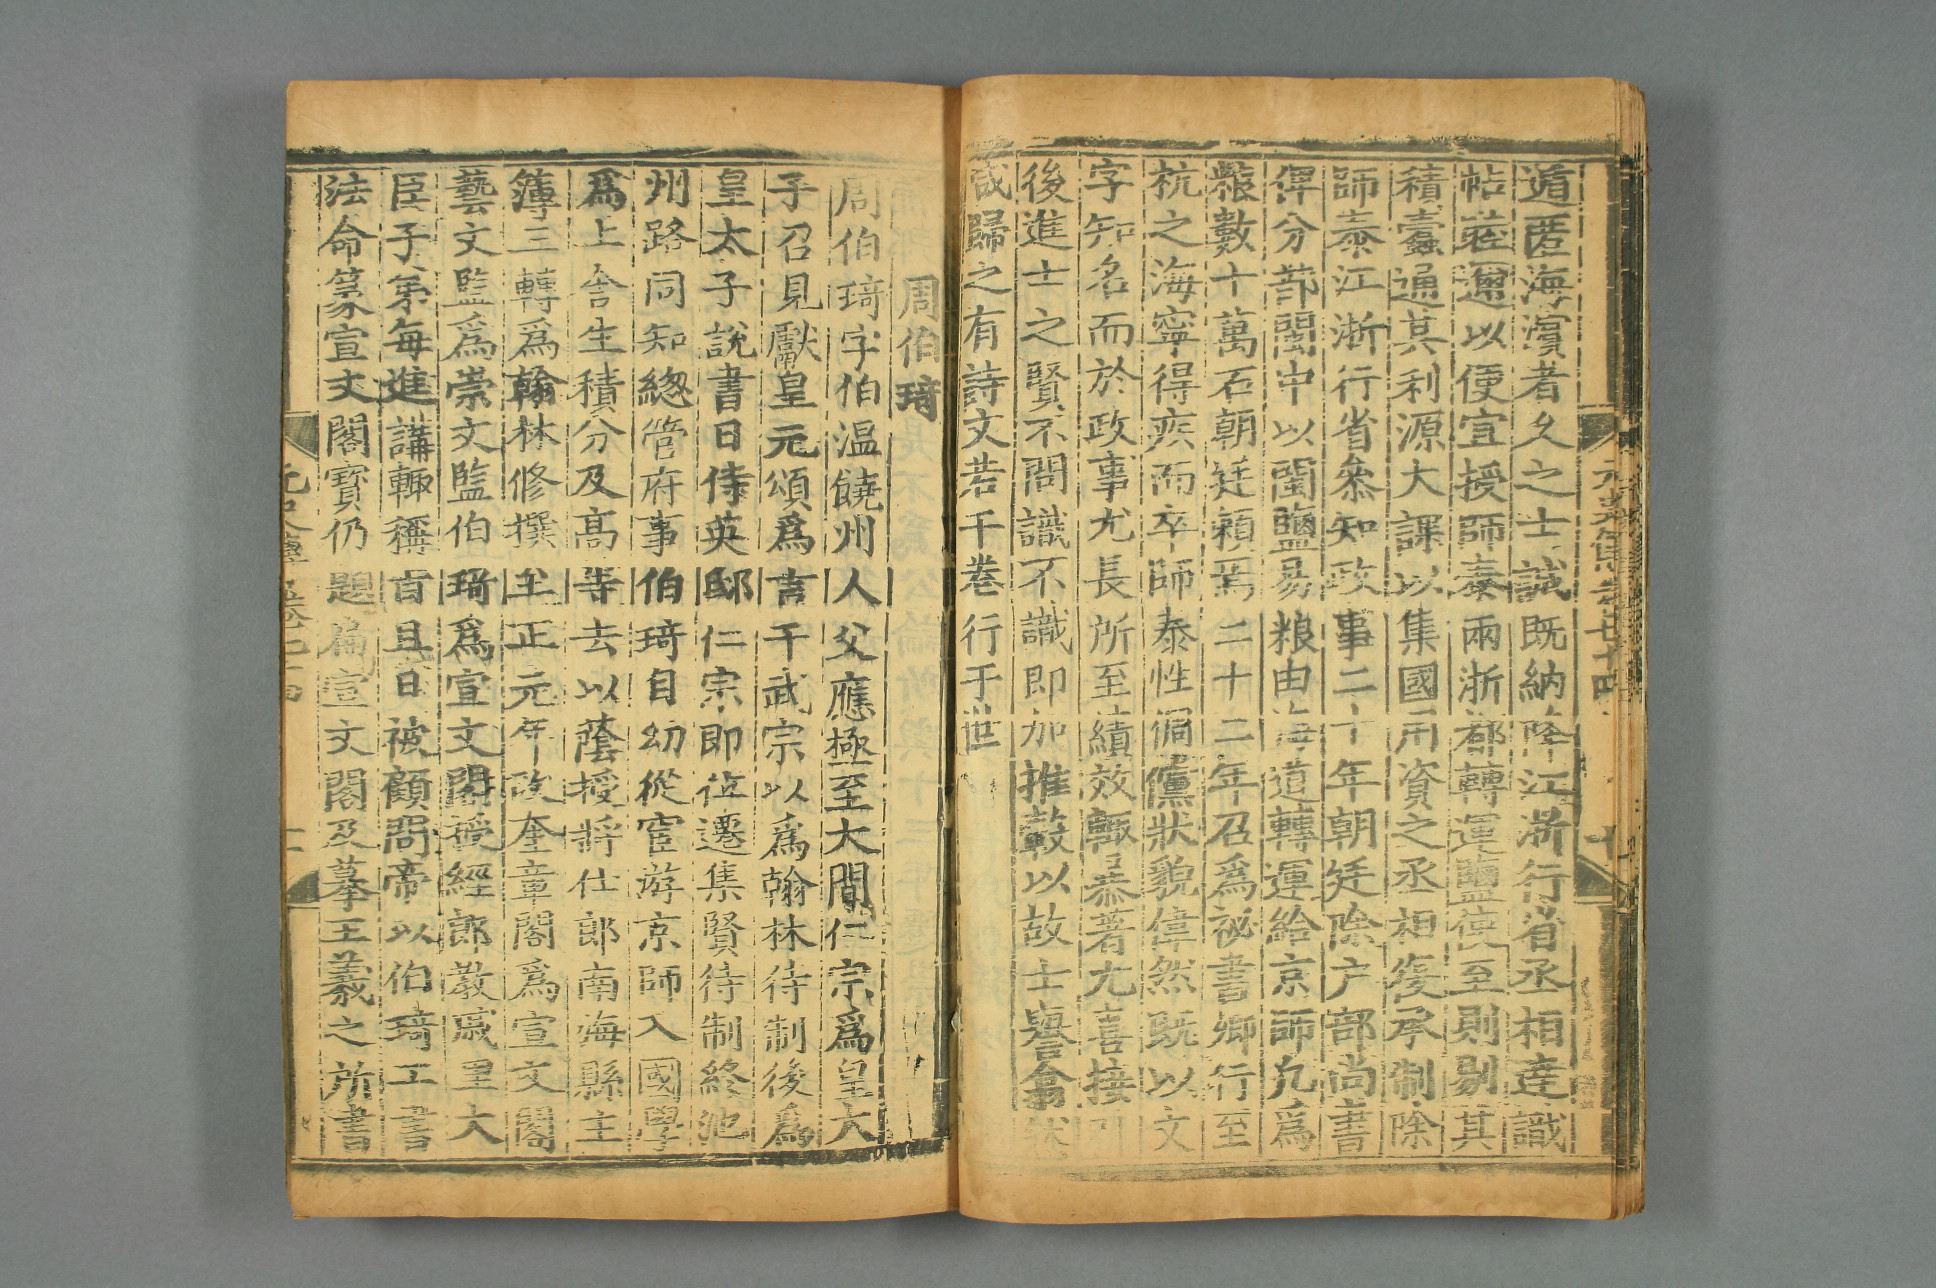 遁匿海濵者久之士誠既納降江浙行省丞相達識
帖蓙邇以便宜授師泰兩浙都轉運鹽使至則剔其
積蠹通其利源大課以集國用資之丞相復承制除
師泰江浙行省叅知政事二十年朝廷除户部尚書
俾分部閩中以閩鹽易粮由海道轉運給京師凡爲
糧數十萬石朝廷頼焉二十二年召爲祕書卿行至
杭之海寧得疾而卒師泰性倜儻狀貌偉然既以文
字知名而於政事尤長所至績效輙暴著尤喜接引
後進士之賢不問識不識即加推轂以故士譽翕然
咸歸之有詩文若干卷行于世
周伯琦
周伯琦字伯温饒州人父應極至大間仁宗爲皇大
子召見獻皇元頌爲言于武宗以爲翰林待制後爲
皇太子說書日侍英邸仁宗即位遷集賢待制終池
州路同知總管府事伯琦自幼從宦游京師入國學
爲上舍生積分及高等去以蔭授將仕郎南海縣主
簿三轉爲翰林修撰至正元年改奎章閣爲宣文閣
藝文監爲崇文監伯琦爲宣文閣授經郎教戚里大
臣子弟每進講輙稱旨且日被顧問帝以伯琦工書
法命篆宣文閣寶仍題扁宣文閣及摹王羲之所書